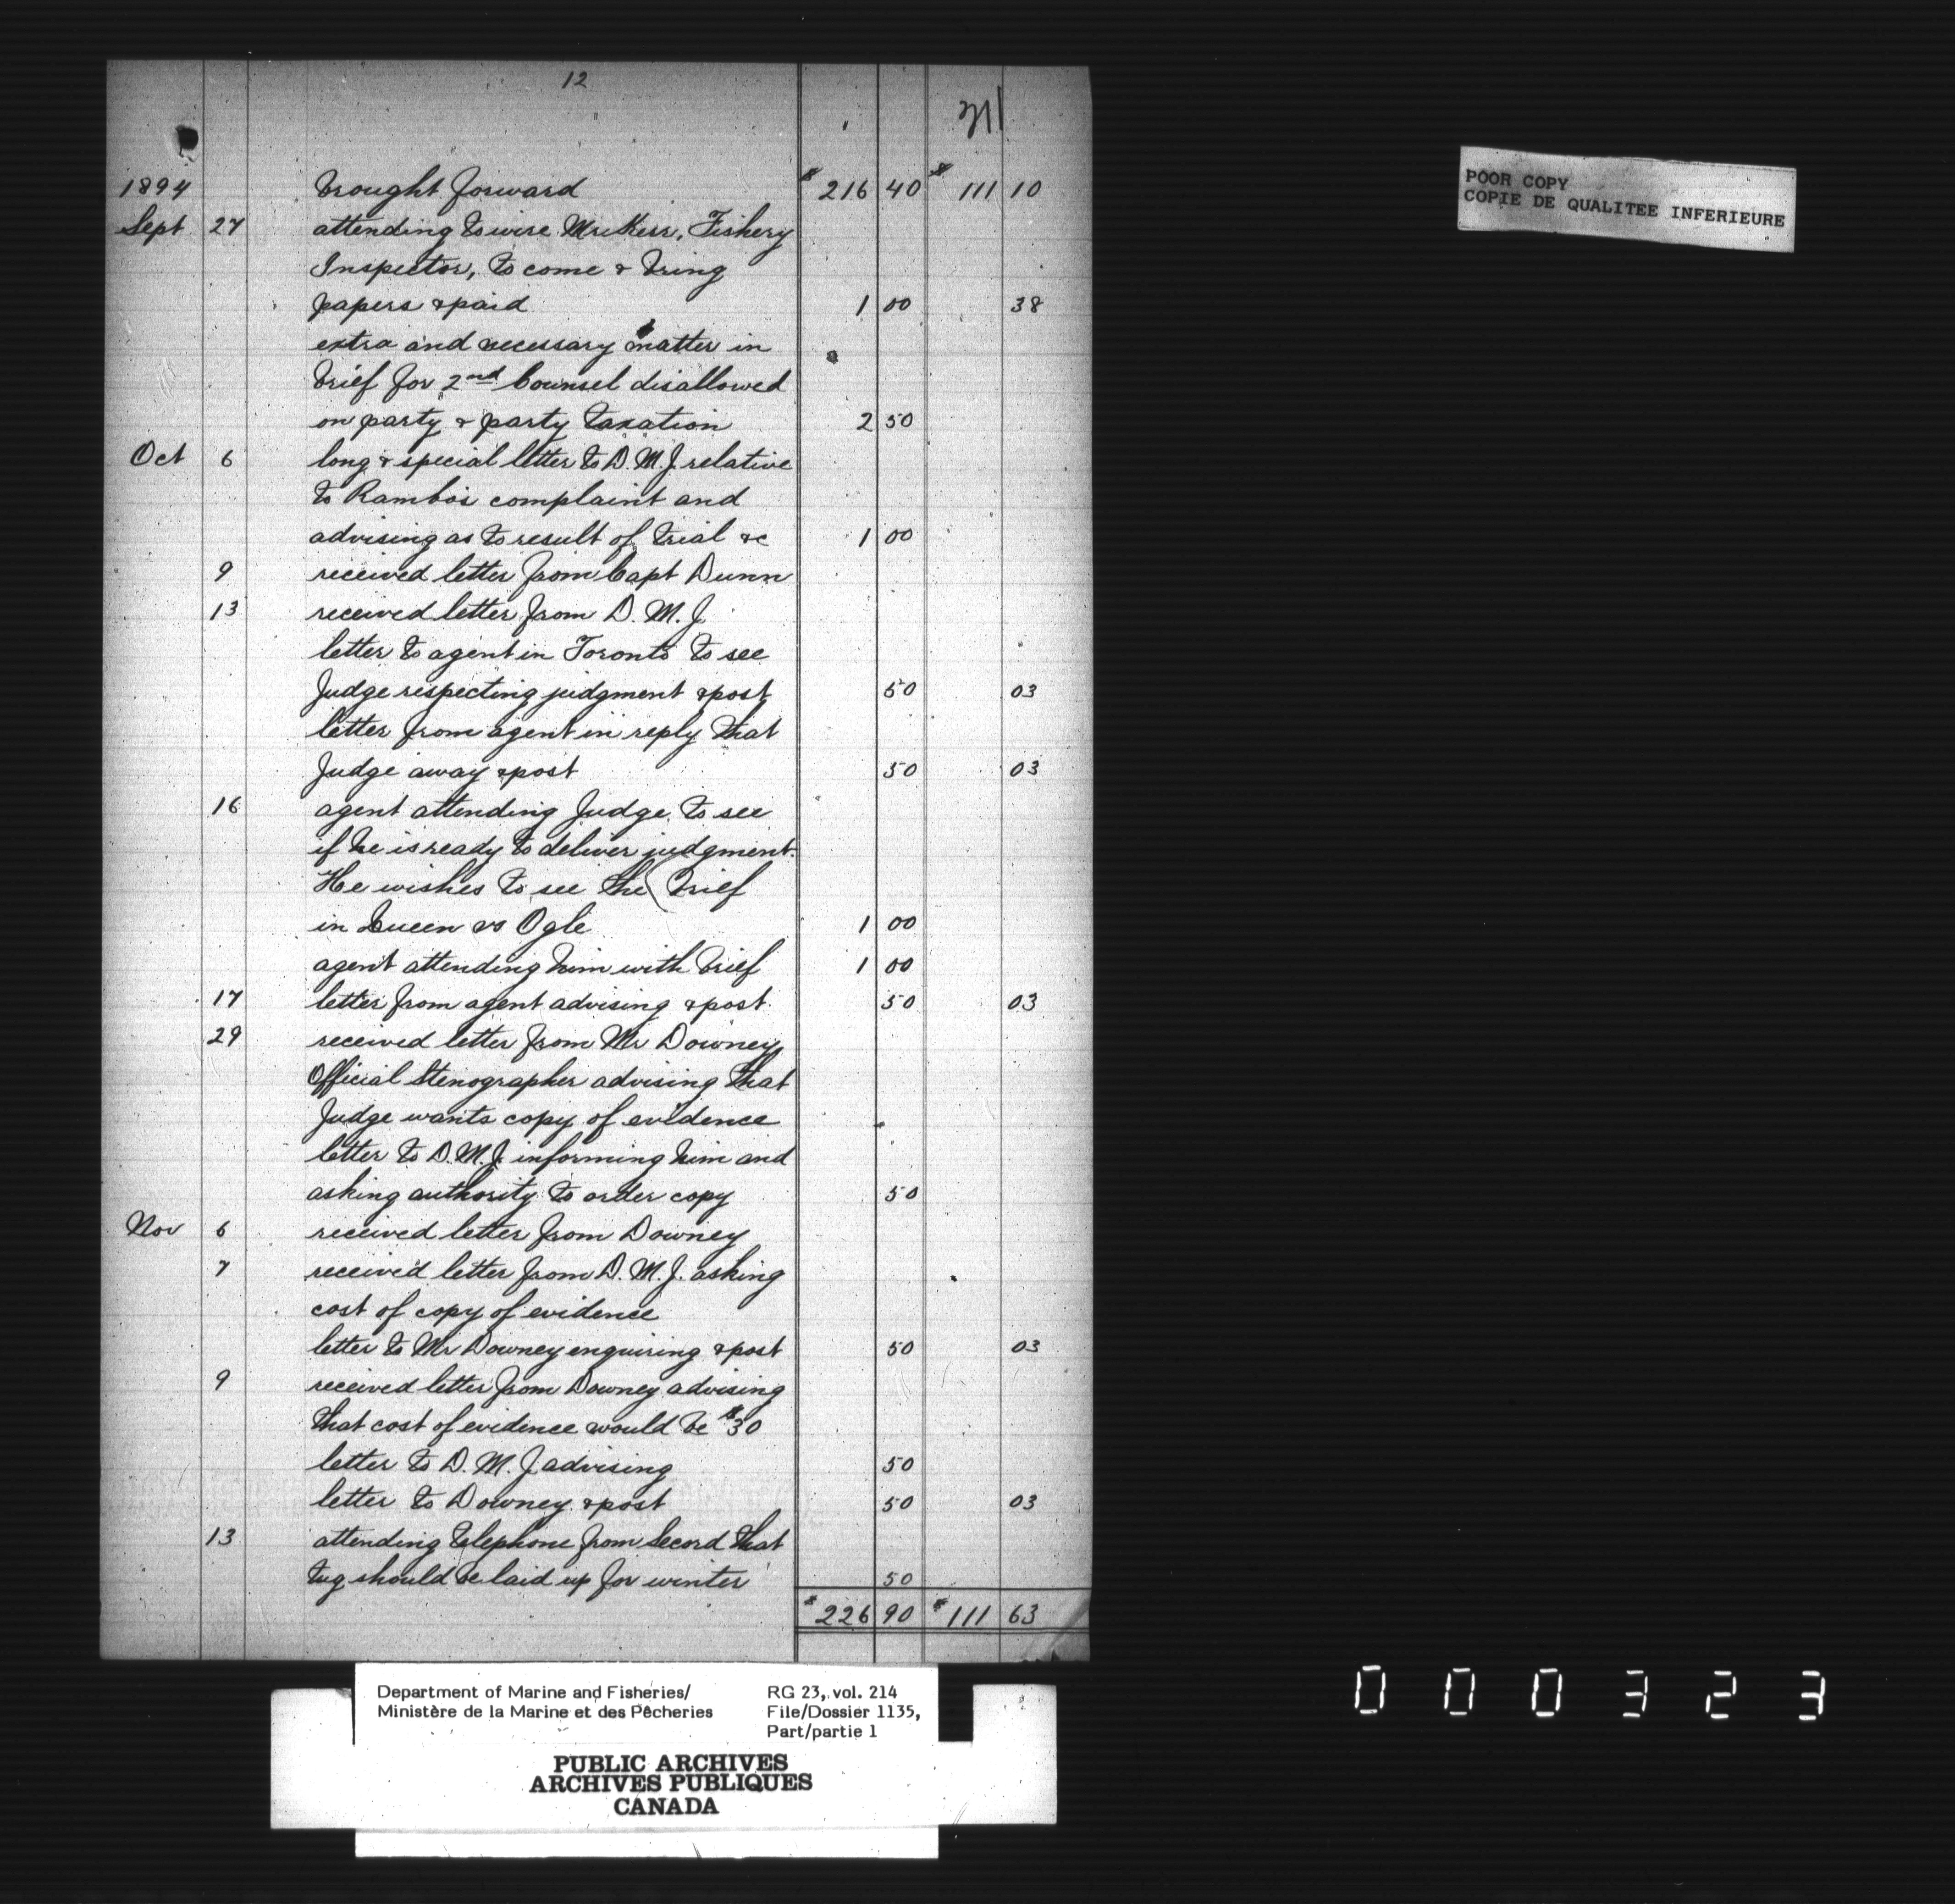 12
211
1894 brought forward $216 40 $111 10
Sept 27 attending to wire Mr Kerr, Fishery
Inspector, to come & bring
papers & paid 1 00 38
extra and necessary matter in
brief for 2nd Counsel disallowed
on party & party taxation 2 50
Oct 6 long & special letter to D. M. J. relative
to Rambo's complaint and
advising as to result of trial &c 1 00
9 received letter from Capt Dunn
13 received letter from D. M. J.
letter to agent in Toronto to see
Judge respecting judgment & post 50 03
letter from agent in reply that
Judge away & post 50 03
16 agent attending Judge to see
if he is ready to deliver judgment.
He wishes to see the brief
in Queen vs Ogle 1 00
agent attending him with brief 1 00
17 letter from agent advising & post 50 03
29 received letter from Mr Downey
Official Stenographer advising that
Judge wants copy of evidence
letter to D. M. J. informing him and
asking authority to order copy 50
Nov 6 received letter from Downey
7 received letter from D. M. J. asking
cost of copy of evidence
letter to Mr Downey enquiring & post 50 03
9 received letter from Downey advising
that cost of evidence would be $30
letter to D. M. J. advising 50
letter to Downey & post 50 03
13 attending telephone from Secord that
tug should be laid up for winter 50
$226 90 $111 63
POOR COPY
COPIE DE QUALITEE INFERIEURE
Department of Marine and Fisheries/
Ministère de la Marine et des Pêcheries
RG 23, vol. 214
File/Dossier 1135,
Part/partie 1
PUBLIC ARCHIVES
ARCHIVES PUBLIQUES
CANADA
000323